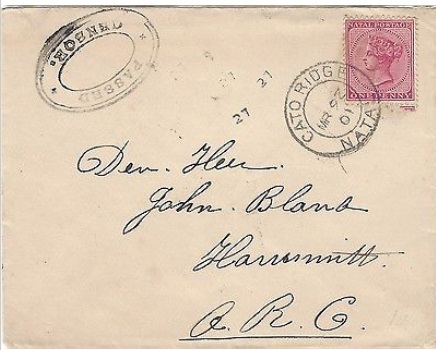 PASSED
CENSOR.
NATAL POSTAGE
ONE PENNY
CATO RIDGE
NATAL
MR 9
01
27
21
27
Den. Heer.
John. Bland
Harrismitt
O. R. C.